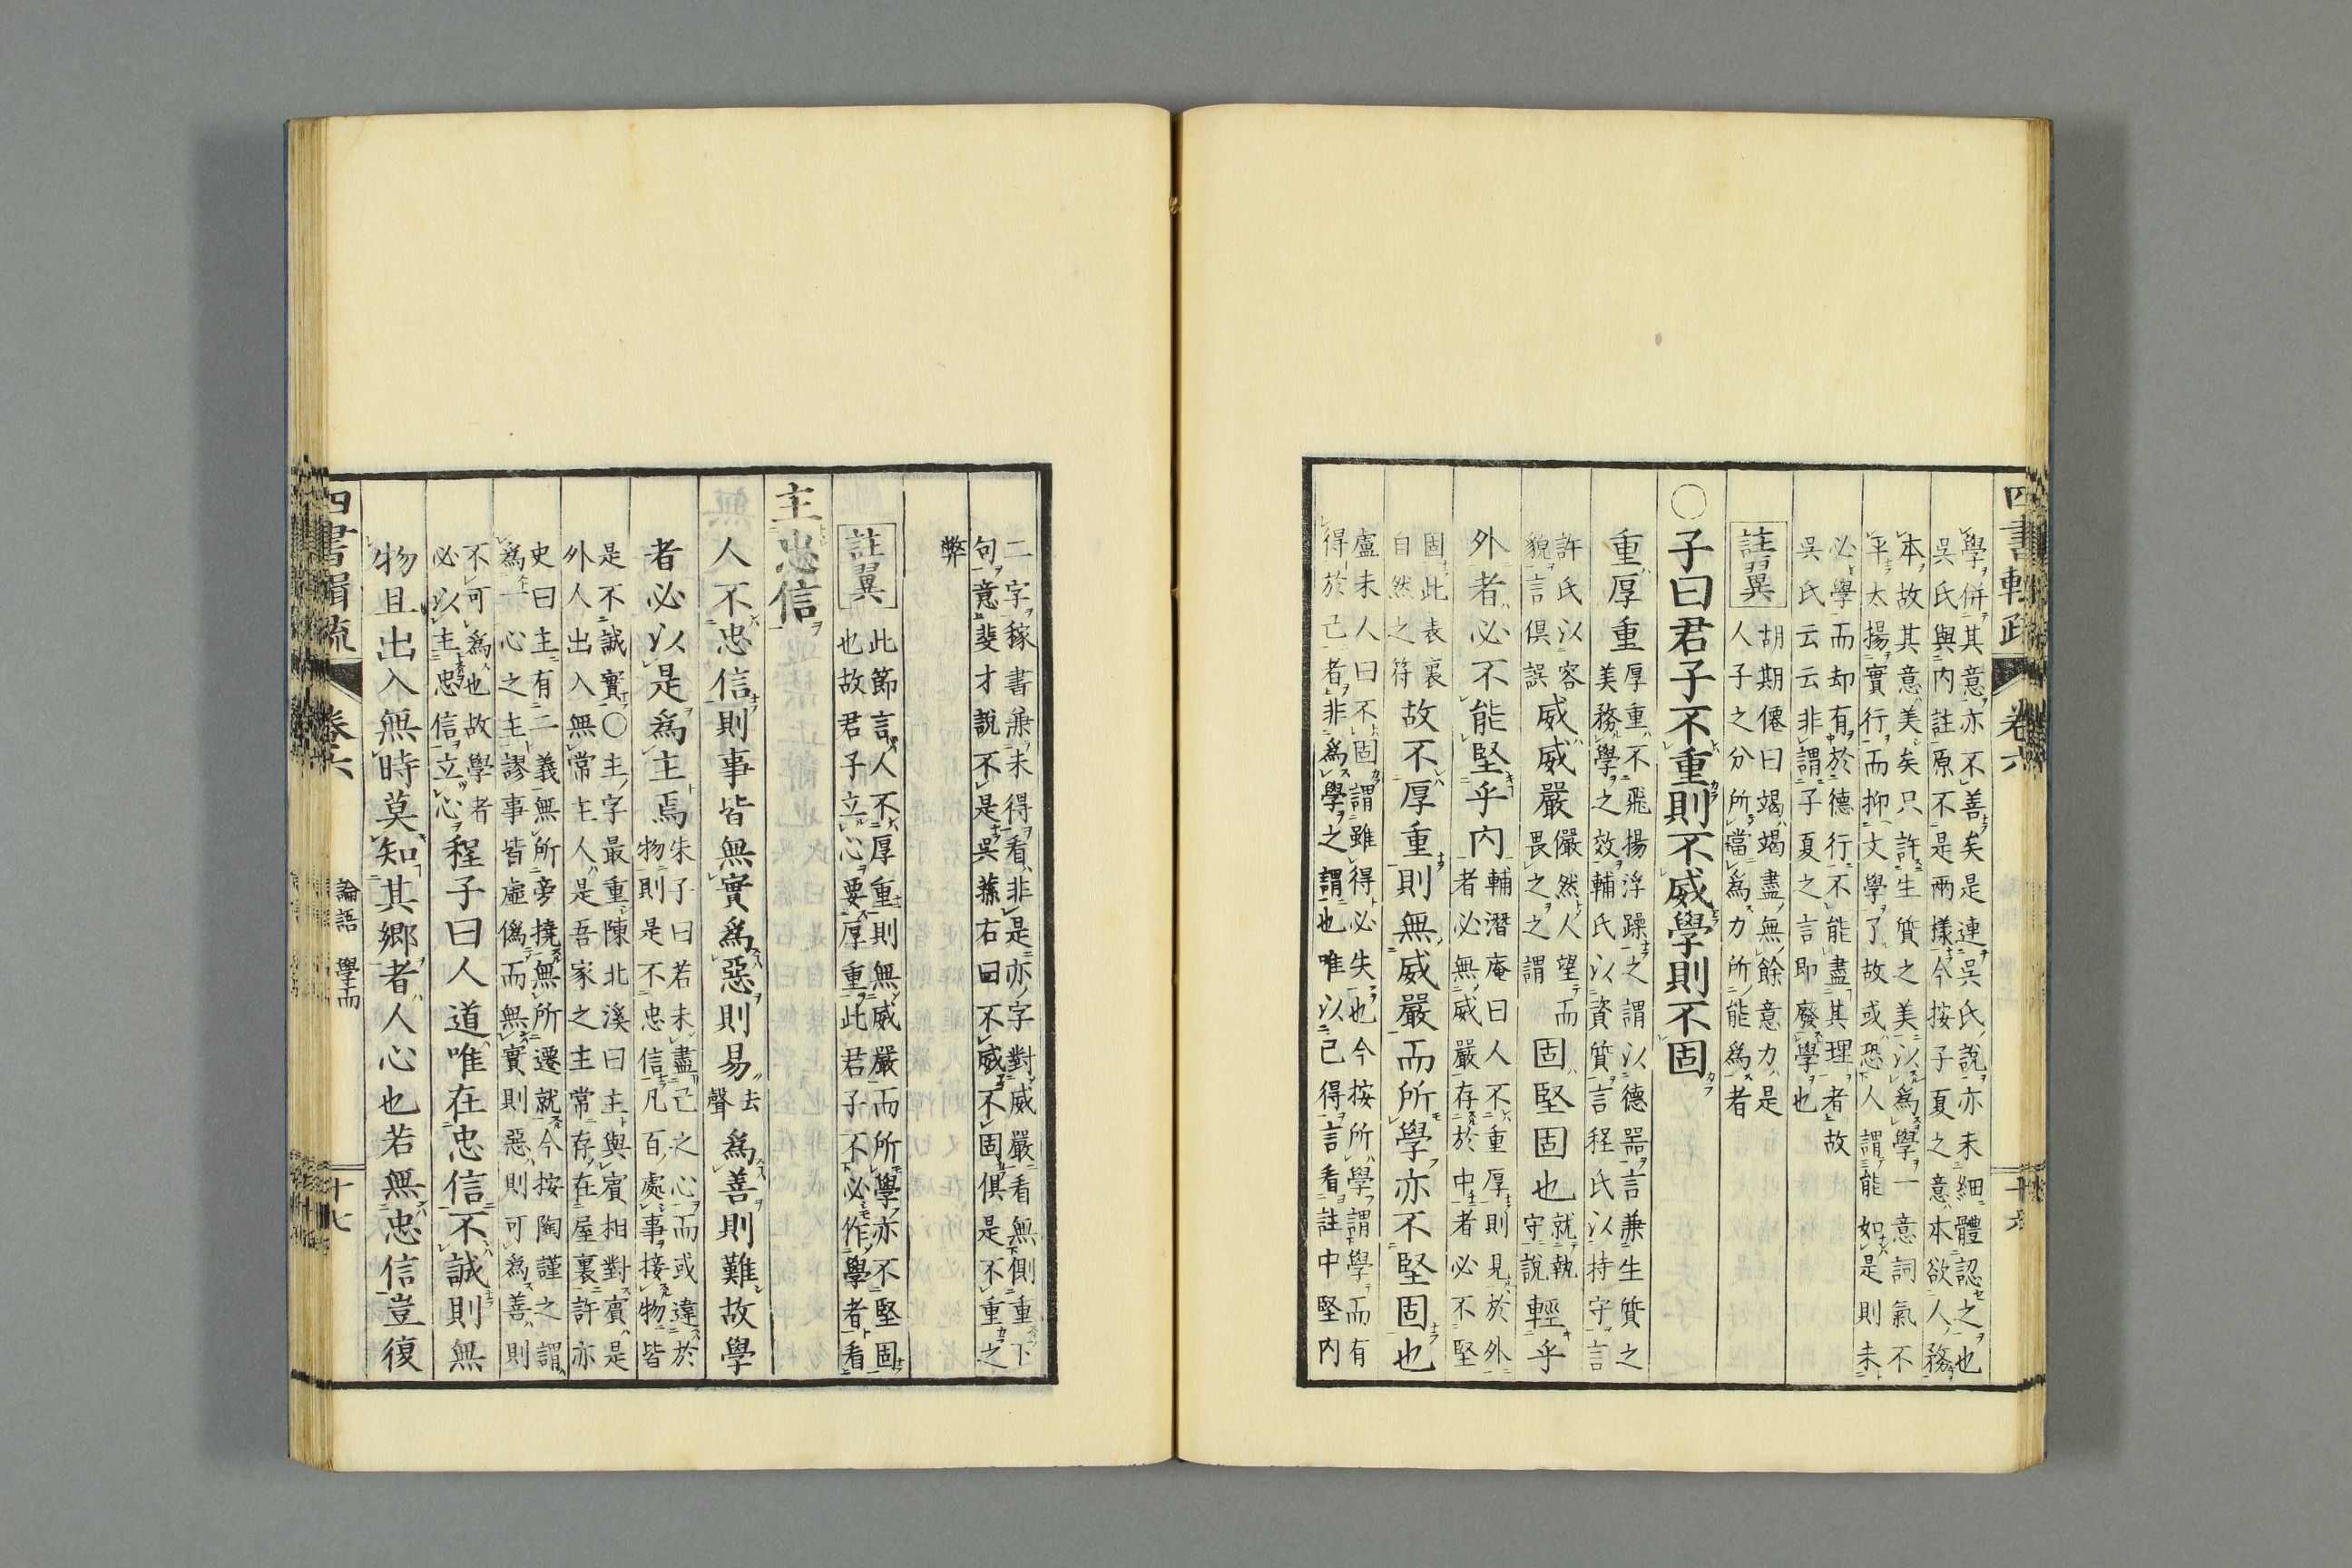 四書輯疏 卷六 十六
學併其意亦不善矣是連吳氏說亦未細體認之也
吳氏與內註原不是兩樣今按子夏之意本欲人務
本故其意美矣只許生質之美以爲學一意詞氣不
平太揚實行而抑文學了故或恐人謂能如是則未
必學而却有於德行不能盡其理者故
吳氏云云非謂子夏之言即廢學也
註翼
胡期僊曰竭竭盡無餘意力是
人子之分所當爲力所能爲者
○子曰君子不重則不威學則不固
重厚重
厚重不飛揚浮躁之謂以德器言兼生質之
美務學之效輔氏以資質言程氏以持守言
許氏以容
貌言俱誤
威威嚴
儼然人望而
畏之之謂
固堅固也
就執
守說
輕乎
外者必不能堅乎內
輔潛庵曰人不重厚則見於外
者必無威嚴存於中者必不堅
固此表裏
自然之符
故不厚重則無威嚴而所學亦不堅固也
盧未人曰不固謂雖得必失也今按所學謂學而有
得於己者非爲學之謂也唯以己得言看註中堅內
二字稼書兼未得看非是亦字對威嚴看無側重下
句意斐才說不是吳蓀右曰不威不固俱是不重之
弊
註翼
此節言人不厚重則無威嚴而所學亦不堅固
也故君子立心要厚重此君子不必作學者看
主忠信
人不忠信則事皆無實爲惡則易
去
聲
爲善則難故學
者必以是爲主焉
朱子曰若未盡己之心而或違於
物則是不忠信凡百處事接物皆
是不誠實○主字最重陳北溪曰主與賓相對賓是
外人出入無常主人是吾家之主常存在屋裏許亦
史曰主有二義無所旁撓無所遷就今按陶謹之謂
爲一心之主謬事皆虛僞而無實則惡則可爲善則
不可爲也故學者
必以主忠信立心
程子曰人道唯在忠信不誠則無
物且出入無時莫知其鄉者人心也若無忠信豈復
四書輯疏 卷六 論語 學而 十七